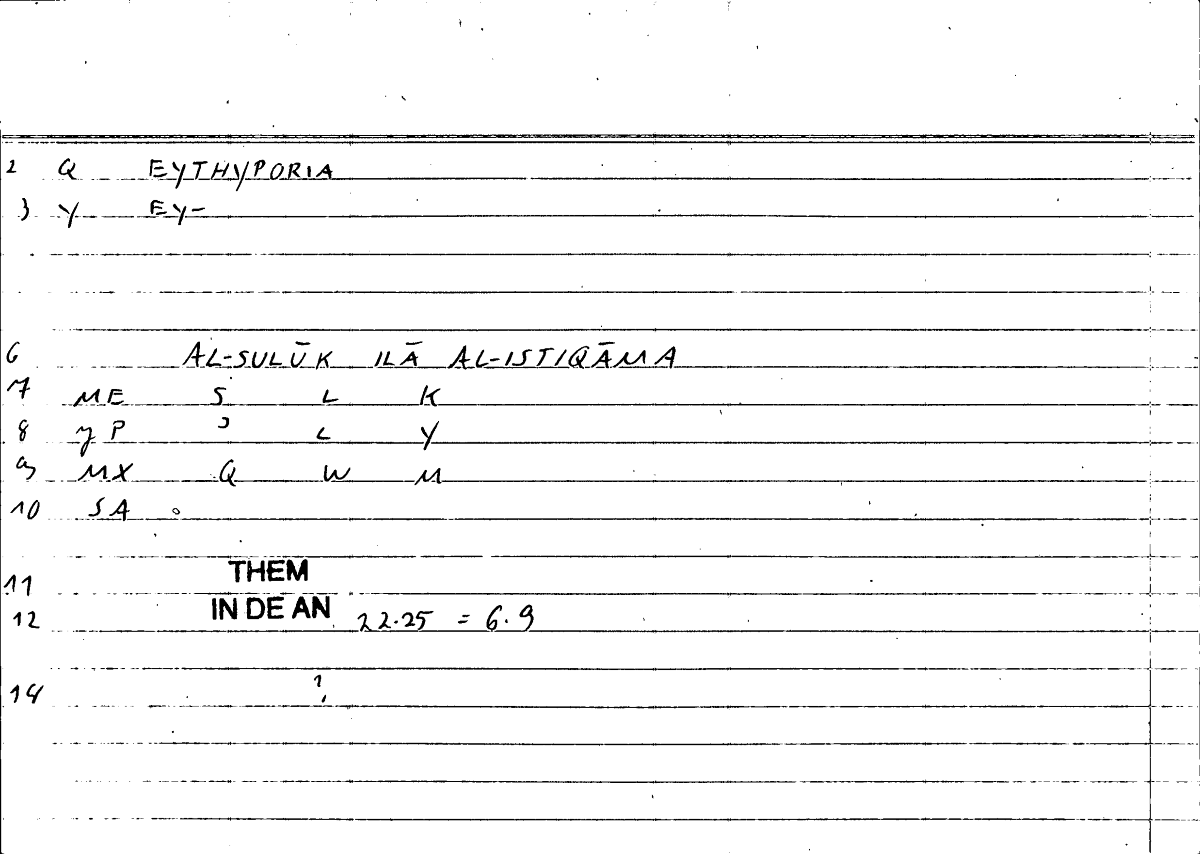 2 Q EYTHYPORIA
3 Y EY-
6 AL-SULŪK ILĀ AL-ISTIQĀMA
7 ME S L K
8 YP ʾ L Y
9 MX Q W M
10 SA °
11 THEM
12 IN DE AN 22.25 = 6.9
14 ?